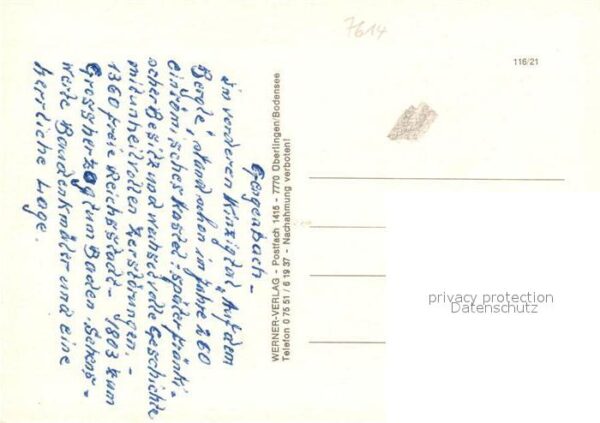 7614
116/21
Gengenbach -
im vorderen Kinzigtal „Auf dem
Bergle", stand schon im Jahre 260
ein römisches Kastel - später fränki-
scher Besitz und wechselvolle Geschichte
mit unheilvollen Zerstörungen. -
1360 freie Reichsstadt - 1803 zum
Grossherzogtum Baden. Sehens-
werte Baudenkmäler und eine
herrliche Lage.
WERNER-VERLAG - Postfach 1415 - 7770 Überlingen/Bodensee
Telefon 0 75 51 / 6 19 37 - Nachahmung verboten!
privacy protection
Datenschutz